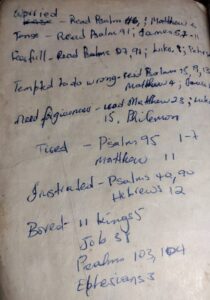 Worried
- Read Psalm 46; Matthew 6
Tense - Read Psalm 91; James 5:7-11
Fearful - Read Psalms 27, 91; Luke 8;
Tempted to do wrong - read Psalms 15, 19,
Matthew 4; James 1
Need forgiveness - read Matthew 23; Luke
15, Philemon
Tired - Psalm 95 1-7
Matthew 11
Frustrated - Psalms 40, 90
Hebrews 12
Bored - 11 Kings 5
Job 38
Psalms 103, 104
Ephesians 3